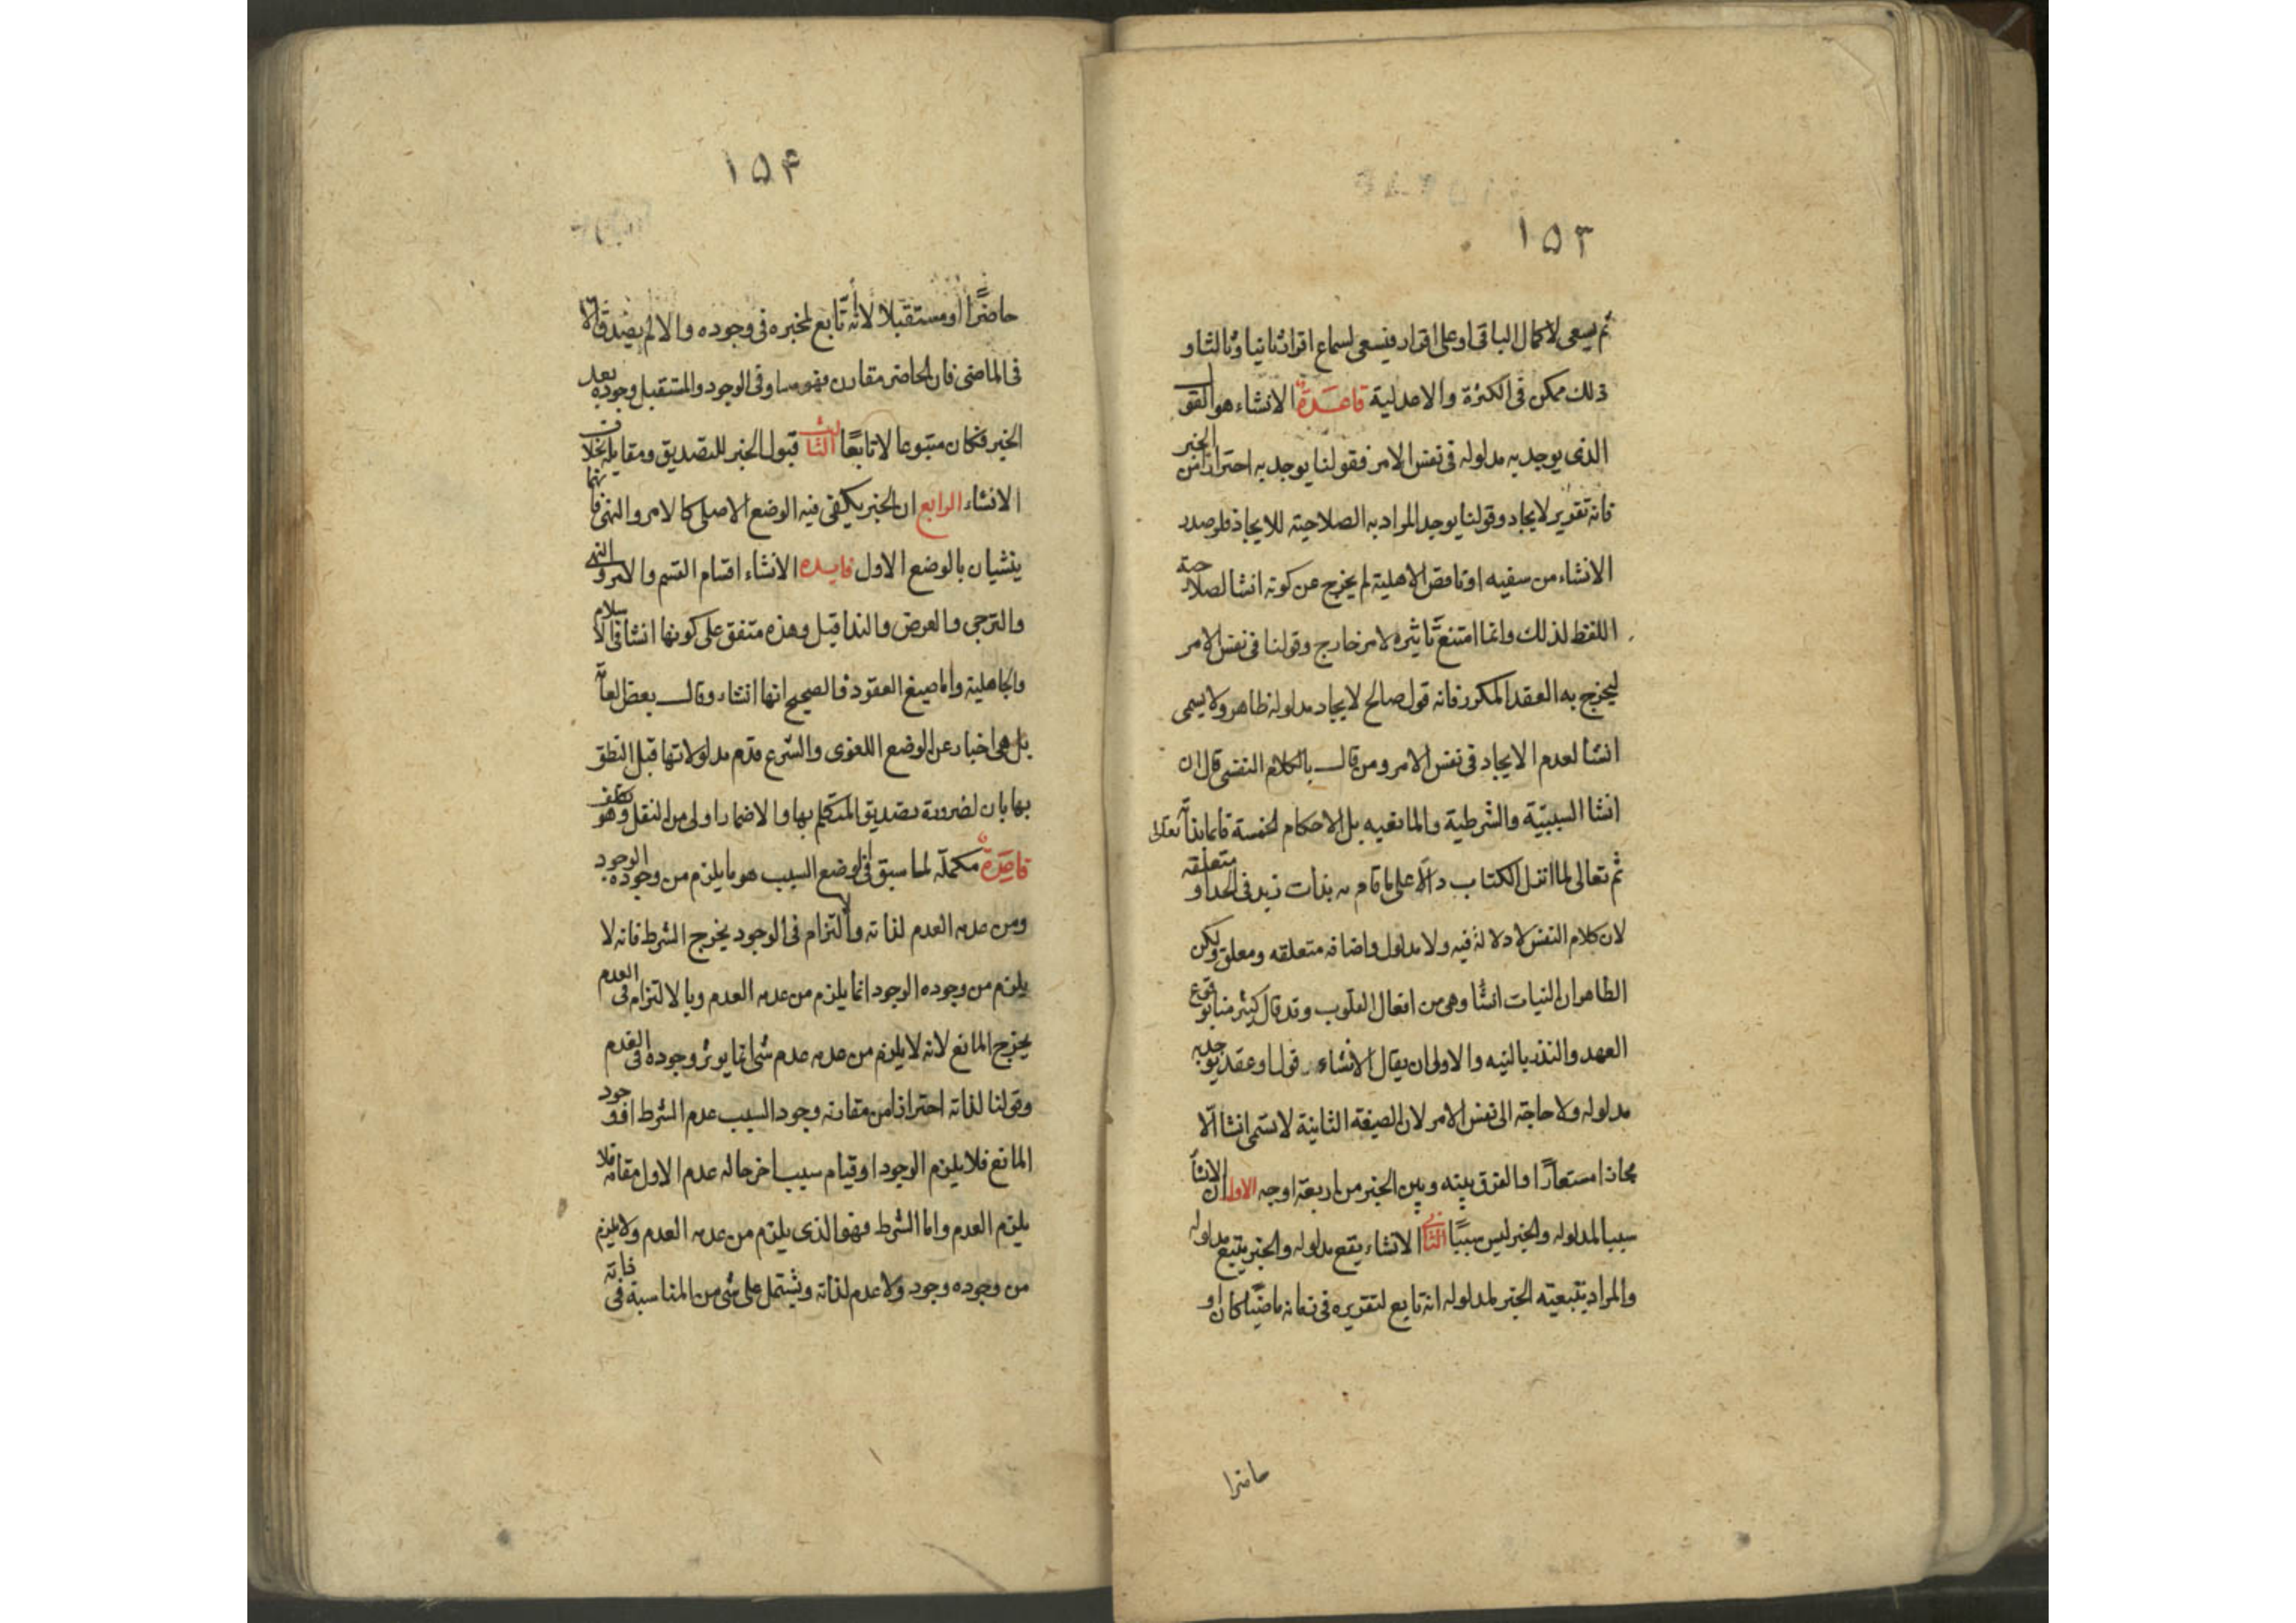 ١۵٣
ثم يسعى لاكمال الباقى او على اقرار فيسعى لسماع اقراره ثانيا وثالثا و
ذلك ممكن فى الكثرة والاصلية قاعدة الانشاء هو القول
الذى يوجد به مدلوله فى نفس الامر فقولنا يوجد به احترازا من الخبر
فانه تقرير لا ايجاد وقولنا يوجد المراد به الصلاحية للايجاد فلو صدر
الانشاء من سفيه او ناقص الاهلية لم يخرج عن كونه انشا لصلاحية
اللفظ لذلك وانما امتنع تاثيره لامر خارج وقولنا فى نفس الامر
ليخرج به العقد المكرر فانه قول صالح لايجاد مدلوله ظاهر ولا يسمى
انشا لعدم الايجاد فى نفس الامر ومن قال بالكلام النفسى قال ان
انشا السببيّة والشرطية والمانعيه بل الاحكام الخمسة قائما بذاته تعالى
ثم تعالى لما انزل الكتاب دالّا على ما قام به بذات زيد فى اتحد او متعلقه
لان كلام النفس لا دلالة فيه ولا مدلول واضافه متعلقه ومعلق ولكن
الظاهر ان النيات انشأ وهى من افعال القلوب وقد قال كثير منا بوقوع
العهد والنذر بالنيه والاولى ان يقال الانشاء قول او عقد يوجد به
مدلوله ولا حاجة الى نفس الامر لان الصيغة الثانية لا تسمى انشا الّا
مجازا مستعارًا والفرق بينه وبين الخبر من اربعة اوجه الاول ان الانشأ
سببا لمدلوله والخبر ليس سببًا الثانى الانشاء يقع مدلوله والخبر يتبع مدلوله
والمراد بتبعيته الخبر لمدلوله انه تابع لتقريره فى زمانه ماضيًا كان او
حاضرا
١۵۴
حاضرًا او مستقبلا لا انه تابع لمخبره فى وجوده والا لم يصدق الا
فى الماضى فان الحاضر مقارن فهو مساو فى الوجود والمستقبل وجوده بعد
الخبر فكان متبوعا لا تابعًا الثالث قبول الخبر للتصديق ومقابله بخلاف
الانشاء الرابع ان الخبر يكفى فيه الوضع الاصلى كالامر والنهى فانهما
ينشيان بالوضع الاول فايده الانشاء اقسام القسم والامر والنهى
والترجى والعرض والندا قيل وهذه متفق على كونها انشا فى الاسلام
والجاهلية واما صيغ العقود فالصحيح انها انشاء وقال بعض العامة
بل هى اخبار عن الوضع اللغوى والشرع قدم مدلولاتها قبل النطق
بها بان لضرورة تصديق المتكلم بها والاضمار اولى من النقل وهو تكلف
قاعدة مكملة لما سبق فى الوضع السبب هو ما يلزم من وجوده الوجود
ومن عدمه العدم لذاته والتزام فى الوجود يخرج الشرط فانه لا
يلزم من وجوده الوجود انما يلزم من عدمه العدم وبالالتزام فى العدم
يخرج المانع لانه لا يلزم من عدمه عدم شى انما يوثر وجوده فى العدم
وقولنا لذاته احترازا من مقارنه وجود السبب عدم الشرط او وجود
المانع فلا يلزم الوجود او قيام سبب اخر حاله عدم الاول مقامه فلا
يلزم العدم واما الشرط فهو الذى يلزم من عدمه العدم ولا يلزم
من وجوده وجود ولا عدم لذاته ويشتمل على شى من المناسبة فى ذاته